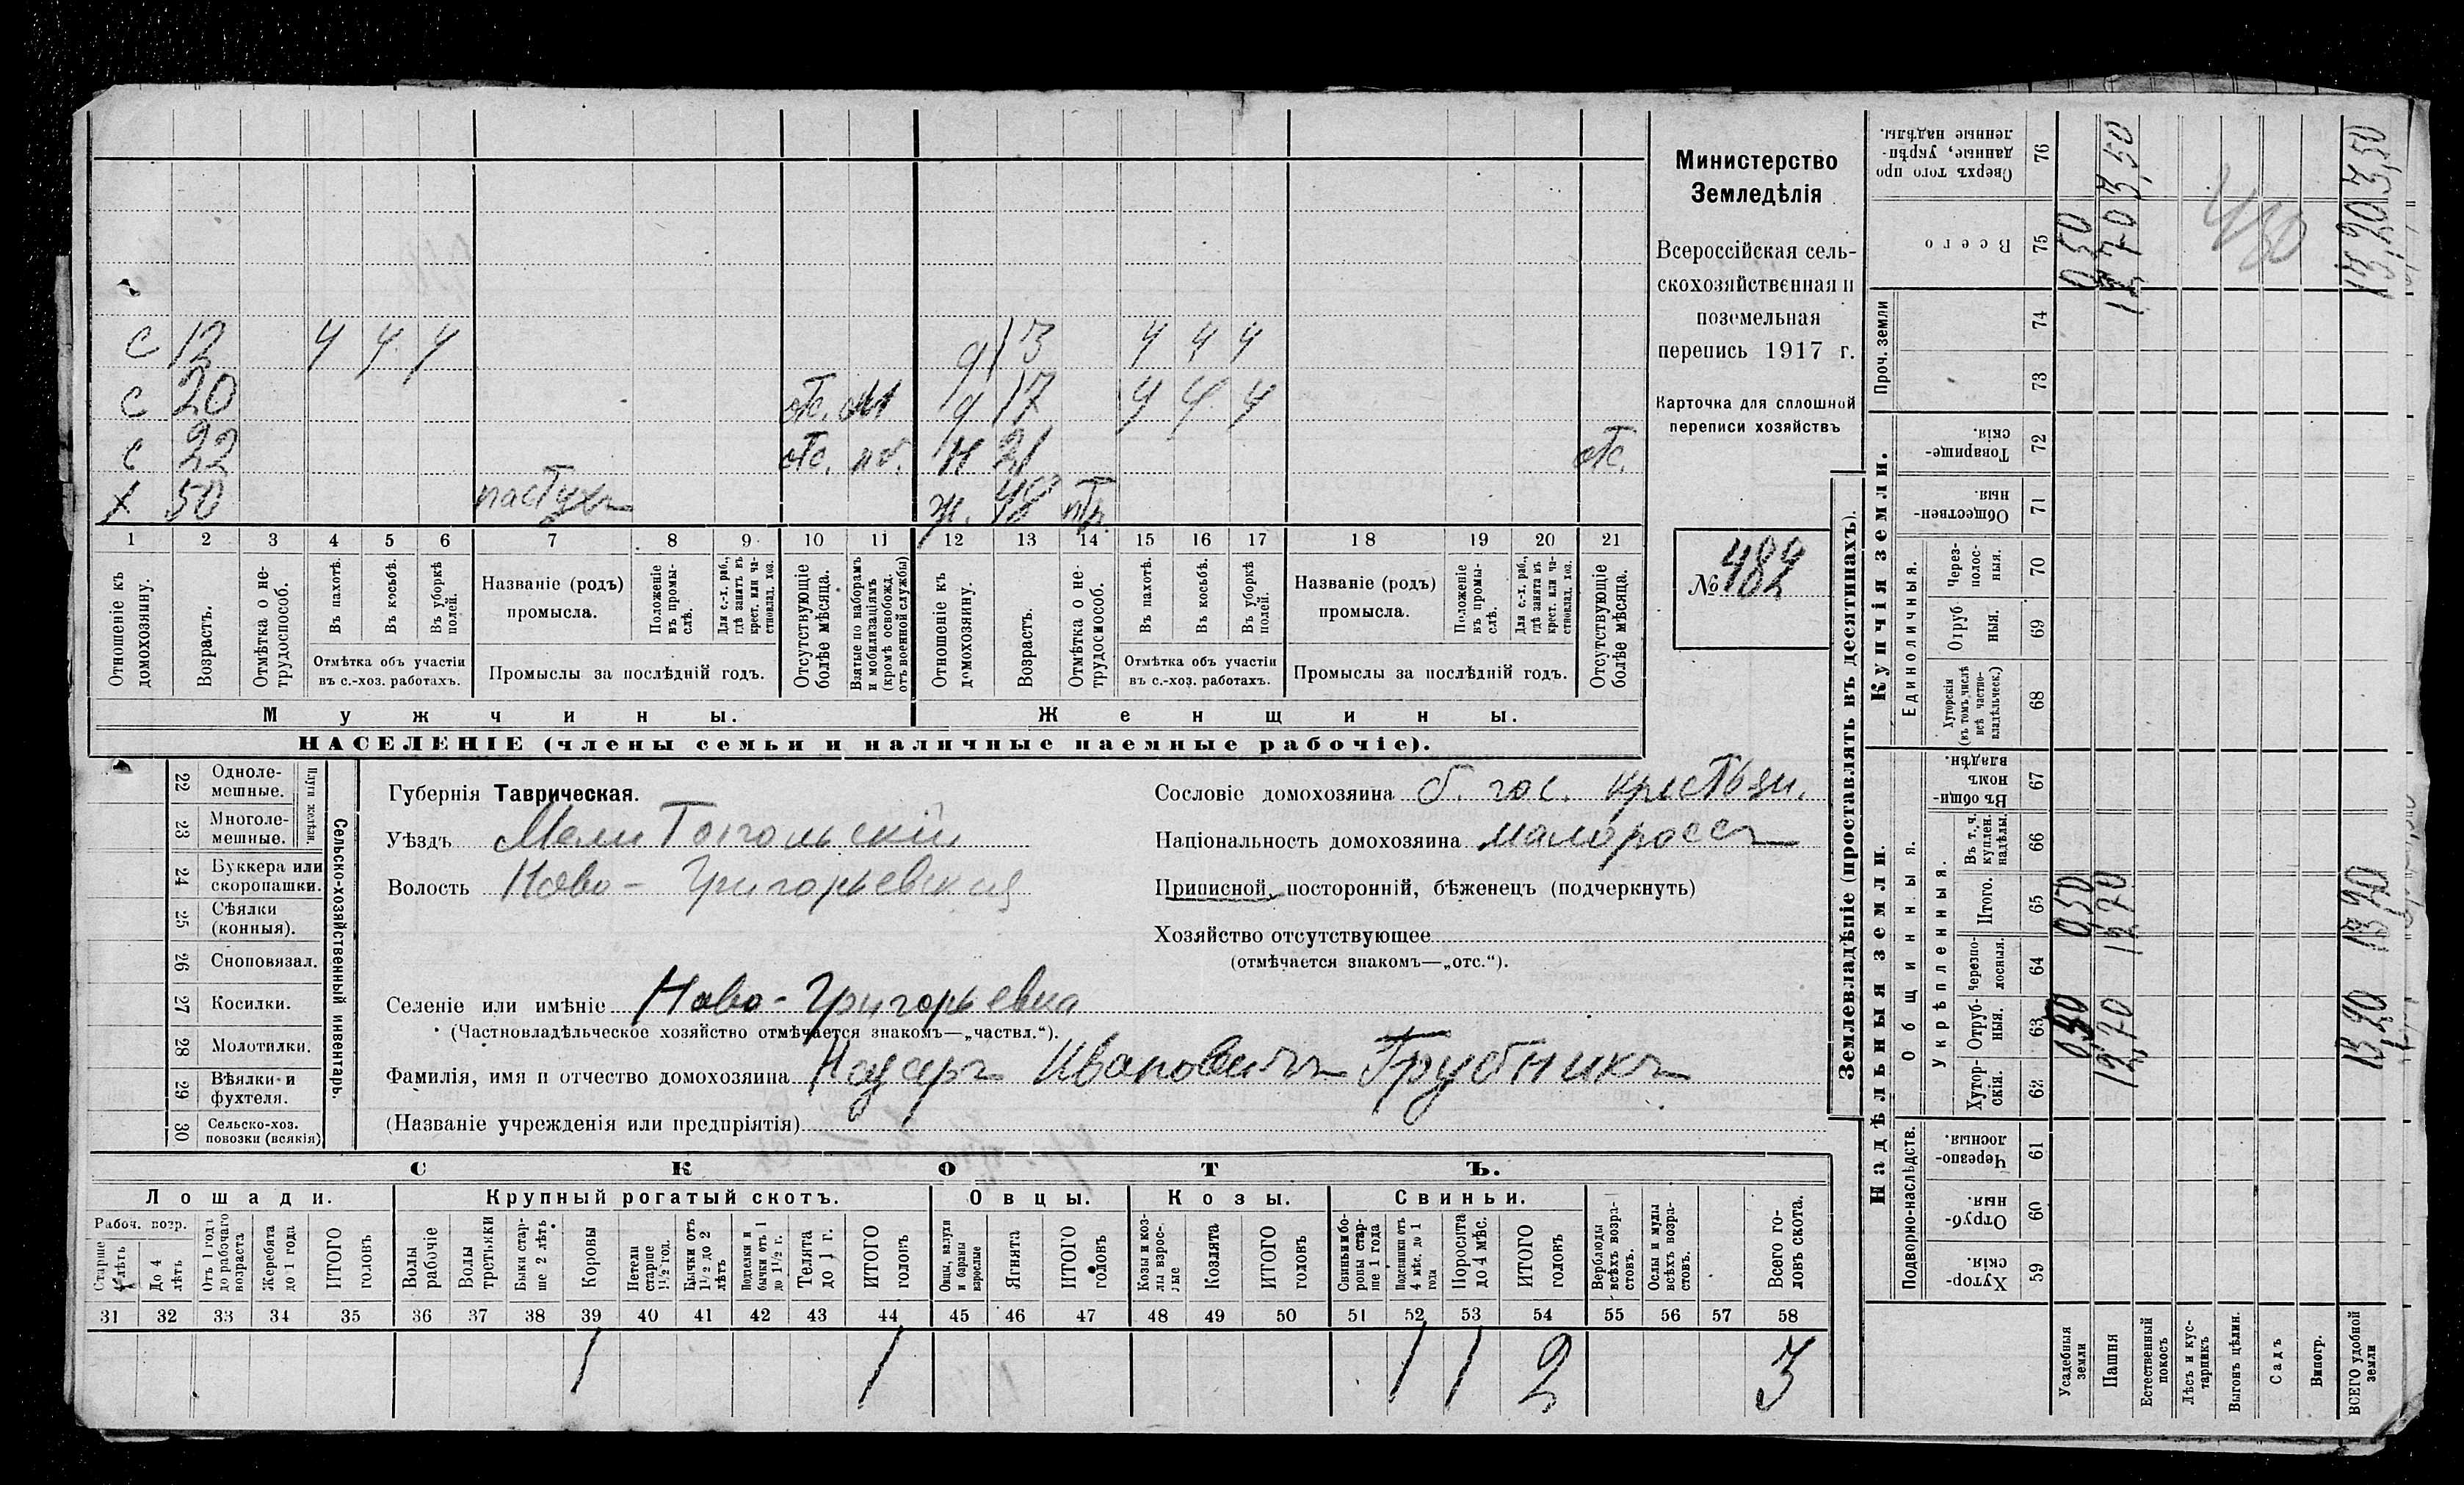 С 12 ч ч ч д 13 ч ч ч
с 20 отс. моб д 17 ч ч ч
с 22 отс. н 21 отс.
х 50 пастухъ ж. 48
1 2 3 4 5 6 7 8 9 10 11 12 13 14 15 16 17 18 19 20 21
Отношеніе къ домохозяину.
Возрастъ.
Отмѣтка о не-
трудоспособ.
Въ пахотѣ.
Въ косьбѣ.
Въ уборкѣ
полей.
Отмѣтка объ участіи
въ с.-хоз. работахъ.
Названіе (родъ)
промысла.
Положеніе
въ промы-
слѣ.
Для с.-х. раб.,
гдѣ занятъ въ
крест. или ча-
стновлад. хоз.
Промыслы за послѣдній годъ.
Отсутствующіе
болѣе мѣсяца.
Взятые по наборамъ
и мобилизаціямъ
(кромѣ освобожд.
отъ военной службы)
Отношеніе къ
домохозяину.
Возрастъ.
Отмѣтка о не-
трудоспособ.
Въ пахотѣ.
Въ косьбѣ.
Въ уборкѣ
полей.
Отмѣтка объ участіи
въ с.-хоз. работахъ.
Названіе (родъ)
промысла.
Положеніе
въ промы-
слѣ.
Для с.-х. раб.,
гдѣ занята въ
крест. или ча-
стновлад. хоз.
Промыслы за послѣдній годъ.
Отсутствующіе
болѣе мѣсяца.
Мужчины.
Женщины.
НАСЕЛЕНІЕ (члены семьи и наличные наемные рабочіе).
Министерство
Земледѣлія
Всероссійская сель-
скохозяйственная и
поземельная
перепись 1917 г.
Карточка для сплошной
переписи хозяйствъ
№ 482
22 Одноле-
мешные.
23 Многоле-
мешные.
24 Буккера или
скоропашки.
25 Сѣялки
(конныя).
26 Сноповязал.
27 Косилки.
28 Молотилки.
29 Вѣялки и
фухтеля.
30 Сельско-хоз.
повозки (всякія)
Сельско-хозяйственный инвентарь.
Губернія Таврическая.
Уѣздъ Мелитопольскій
Волость Ново-Григорьевская
Селеніе или имѣніе Ново-Григорьевка
(Частновладѣльческое хозяйство отмѣчается знакомъ—„частвл.“).
Фамилія, имя и отчество домохозяина Назаръ Ивановичъ Трубникъ
(Названіе учрежденія или предпріятія)
Сословіе домохозяина б. гос. крестьян.
Національность домохозяина малороссъ
Приписной, посторонній, бѣженецъ (подчеркнуть)
Хозяйство отсутствующее
(отмѣчается знакомъ—„отс.“).
СКОТЪ.
Лошади.
Крупный рогатый скотъ.
Овцы.
Козы.
Свиньи.
Рабоч. возр.
Старше
4 лѣтъ
До 4
лѣтъ
Отъ 1 года
до рабочаго
возраста
Жеребята
до 1 года
ИТОГО
головъ
Волы
рабочіе
Волы
третьяки
Быки стар-
ше 2 лѣтъ
Коровы
Нетели
старше
1½ год.
Бычки отъ
1½ до 2
лѣтъ
Подтелки и
бычки отъ 1
до 1½ г.
Телята
до 1 г.
ИТОГО
головъ
Овцы, валухи
и бараны
взрослые
Ягнята
ИТОГО
головъ
Козы и коз-
лы взрос-
лые
Козлята
ИТОГО
головъ
Свиньи бо-
ровы стар-
ше 1 года
Подсвинки отъ
4 мѣс. до 1
года
Поросята
до 4 мѣс.
ИТОГО
головъ
Верблюды
всѣхъ возра-
стовъ.
Ослы и мулы
всѣхъ возра-
стовъ.
Всего го-
ловъ скота.
31 32 33 34 35 36 37 38 39 40 41 42 43 44 45 46 47 48 49 50 51 52 53 54 55 56 57 58
1 1 1 1 2 3
Землевладѣніе (проставлять въ десятинахъ).
Надѣльныя земли.
Купчія земли.
Проч. земли
Подворно-наслѣдств.
Общинныя.
Укрѣпленныя.
Единоличныя.
Хутор-
скія. 59
Отруб-
ныя 60
Черезпо-
лосныя. 61
Хутор-
скія. 62
Отруб-
ныя. 63 0,50 12,70 13,20
Черезпо-
лосныя. 64
Итого. 65 0,50 12,70 13,20
Въ т. ч.
куплен.
надѣлы. 66
Въ общи-
номъ
владѣн. 67
Хуторскія
(въ томъ числѣ
всѣ частно-
владѣльческ.) 68
Отруб
ныя. 69
Через-
полос-
ныя. 70
Обществен-
ныя. 71
Товарище-
скія. 72
73
74
Всего 75 0,50 12,70 13,20
Сверхъ того про
данные, укрѣп-
ленные надѣлы. 76 3,50 3,50
450
Усадебныя
земли
Пашня
Естественный
покосъ
Лѣсъ и кус-
тарникъ
Выгонъ цѣлин.
Садъ
Виногр.
ВСЕГО удобной
земли